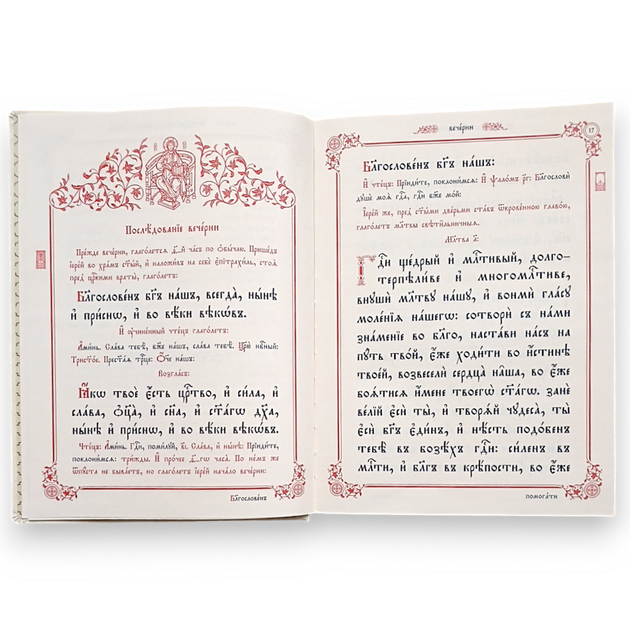 Послѣ́дованїе вече́рни
Пре́жде вече́рни, глаго́летсѧ ѳ҃-й ча́съ по ѻбы́чаю. Прише́дъ
і҆ере́й во хра́мъ ст҃ы́й, и҆ наложи́въ на себѐ є҆пітрахи́ль, стоѧ̀
пред̾ црⷭ҇кими враты̀, глаго́летъ:
Бл҃гослове́нъ бг҃ъ на́шъ, всегда̀, ны́нѣ
и҆ при́снѡ, и҆ во вѣ́ки вѣкѡ́въ.
И҆ ᲂу҆чине́нный чте́цъ глаго́летъ:
А҆ми́нь. Сла́ва тебѣ̀, бж҃е на́шъ, сла́ва тебѣ̀. Цр҃ю̀ нбⷭ҇ный:
Трист҃о́е. Прест҃а́ѧ трⷪ҇це: Ѻ҆́че на́шъ:
Возгла́съ:
Ꙗ҆́кѡ твоѐ є҆́сть црⷭ҇тво, и҆ си́ла, и҆
сла́ва, ѻ҆ц҃а̀, и҆ сн҃а, и҆ ст҃а́гѡ дх҃а,
ны́нѣ и҆ при́снѡ, и҆ во вѣ́ки вѣкѡ́въ.
Чте́цъ: А҆ми́нь. Гдⷭ҇и, поми́лꙋй, в҃і. Сла́ва, и҆ ны́нѣ: Прїиди́те,
поклони́мсѧ: три́жды. И҆ про́чее ѳ҃-гѡ часа̀. По не́мъ же
ѿпꙋ́ста не быва́етъ, но глаго́летъ і҆ере́й нача́ло вече́рни:
Бл҃гослове́нъ
вече́рни
17
Бл҃гослове́нъ бг҃ъ на́шъ:
И҆ чте́цъ: Прїиди́те, поклони́мсѧ: И҆ ѱало́мъ рг҃: Бл҃гословѝ
дꙋшѐ моѧ̀ гдⷭ҇а, гдⷭ҇и бж҃е мо́й:
І҆ере́й же, пред̾ ст҃ы́ми две́рьми ста́въ ѿкрове́нною главо́ю,
глаго́летъ мл҃твы свѣти́льничныѧ.
Мл҃тва а҃:
Гдⷭ҇и ще́дрый и҆ млⷭ҇тивый, долго-
терпѣли́ве и҆ многомлⷭ҇тиве,
внꙋшѝ мл҃твꙋ на́шꙋ, и҆ вонмѝ гла́сꙋ
моле́нїѧ на́шегѡ: сотворѝ съ на́ми
зна́менїе во бл҃го, наста́ви на́съ на
пꙋ́ть тво́й, є҆́же ходи́ти во и҆́стинѣ
твое́й, возвеселѝ сердца̀ на́ша, во є҆́же
боѧ́тисѧ и҆́мене твоегѡ̀ ст҃а́гѡ. занѐ
ве́лїй є҆сѝ ты̀, и҆ творѧ́й чꙋдеса̀, ты̀
є҆сѝ бг҃ъ є҆ди́нъ, и҆ нѣ́сть подо́бенъ
тебѣ̀ въ бозѣ́хъ гдⷭ҇и: си́ленъ въ
млⷭ҇ти, и҆ бл҃гъ въ крѣ́пости, во є҆́же
помога́ти